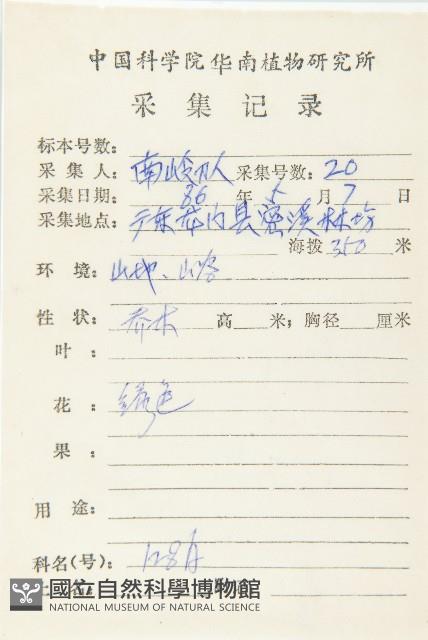 中国科学院华南植物研究所
采集记录
标本号数:
采集人: 南岭队 采集号数: 20
采集日期: 86 年 5 月 7 日
采集地点: 广东 县 溪林场
海拨 350 米
环境: 山地、山谷
性状: 乔木 高 米; 胸径 厘米
叶:
花: 绿色
果:
用途:
科名(号): 128A
國立自然科學博物館
NATIONAL MUSEUM OF NATURAL SCIENCE